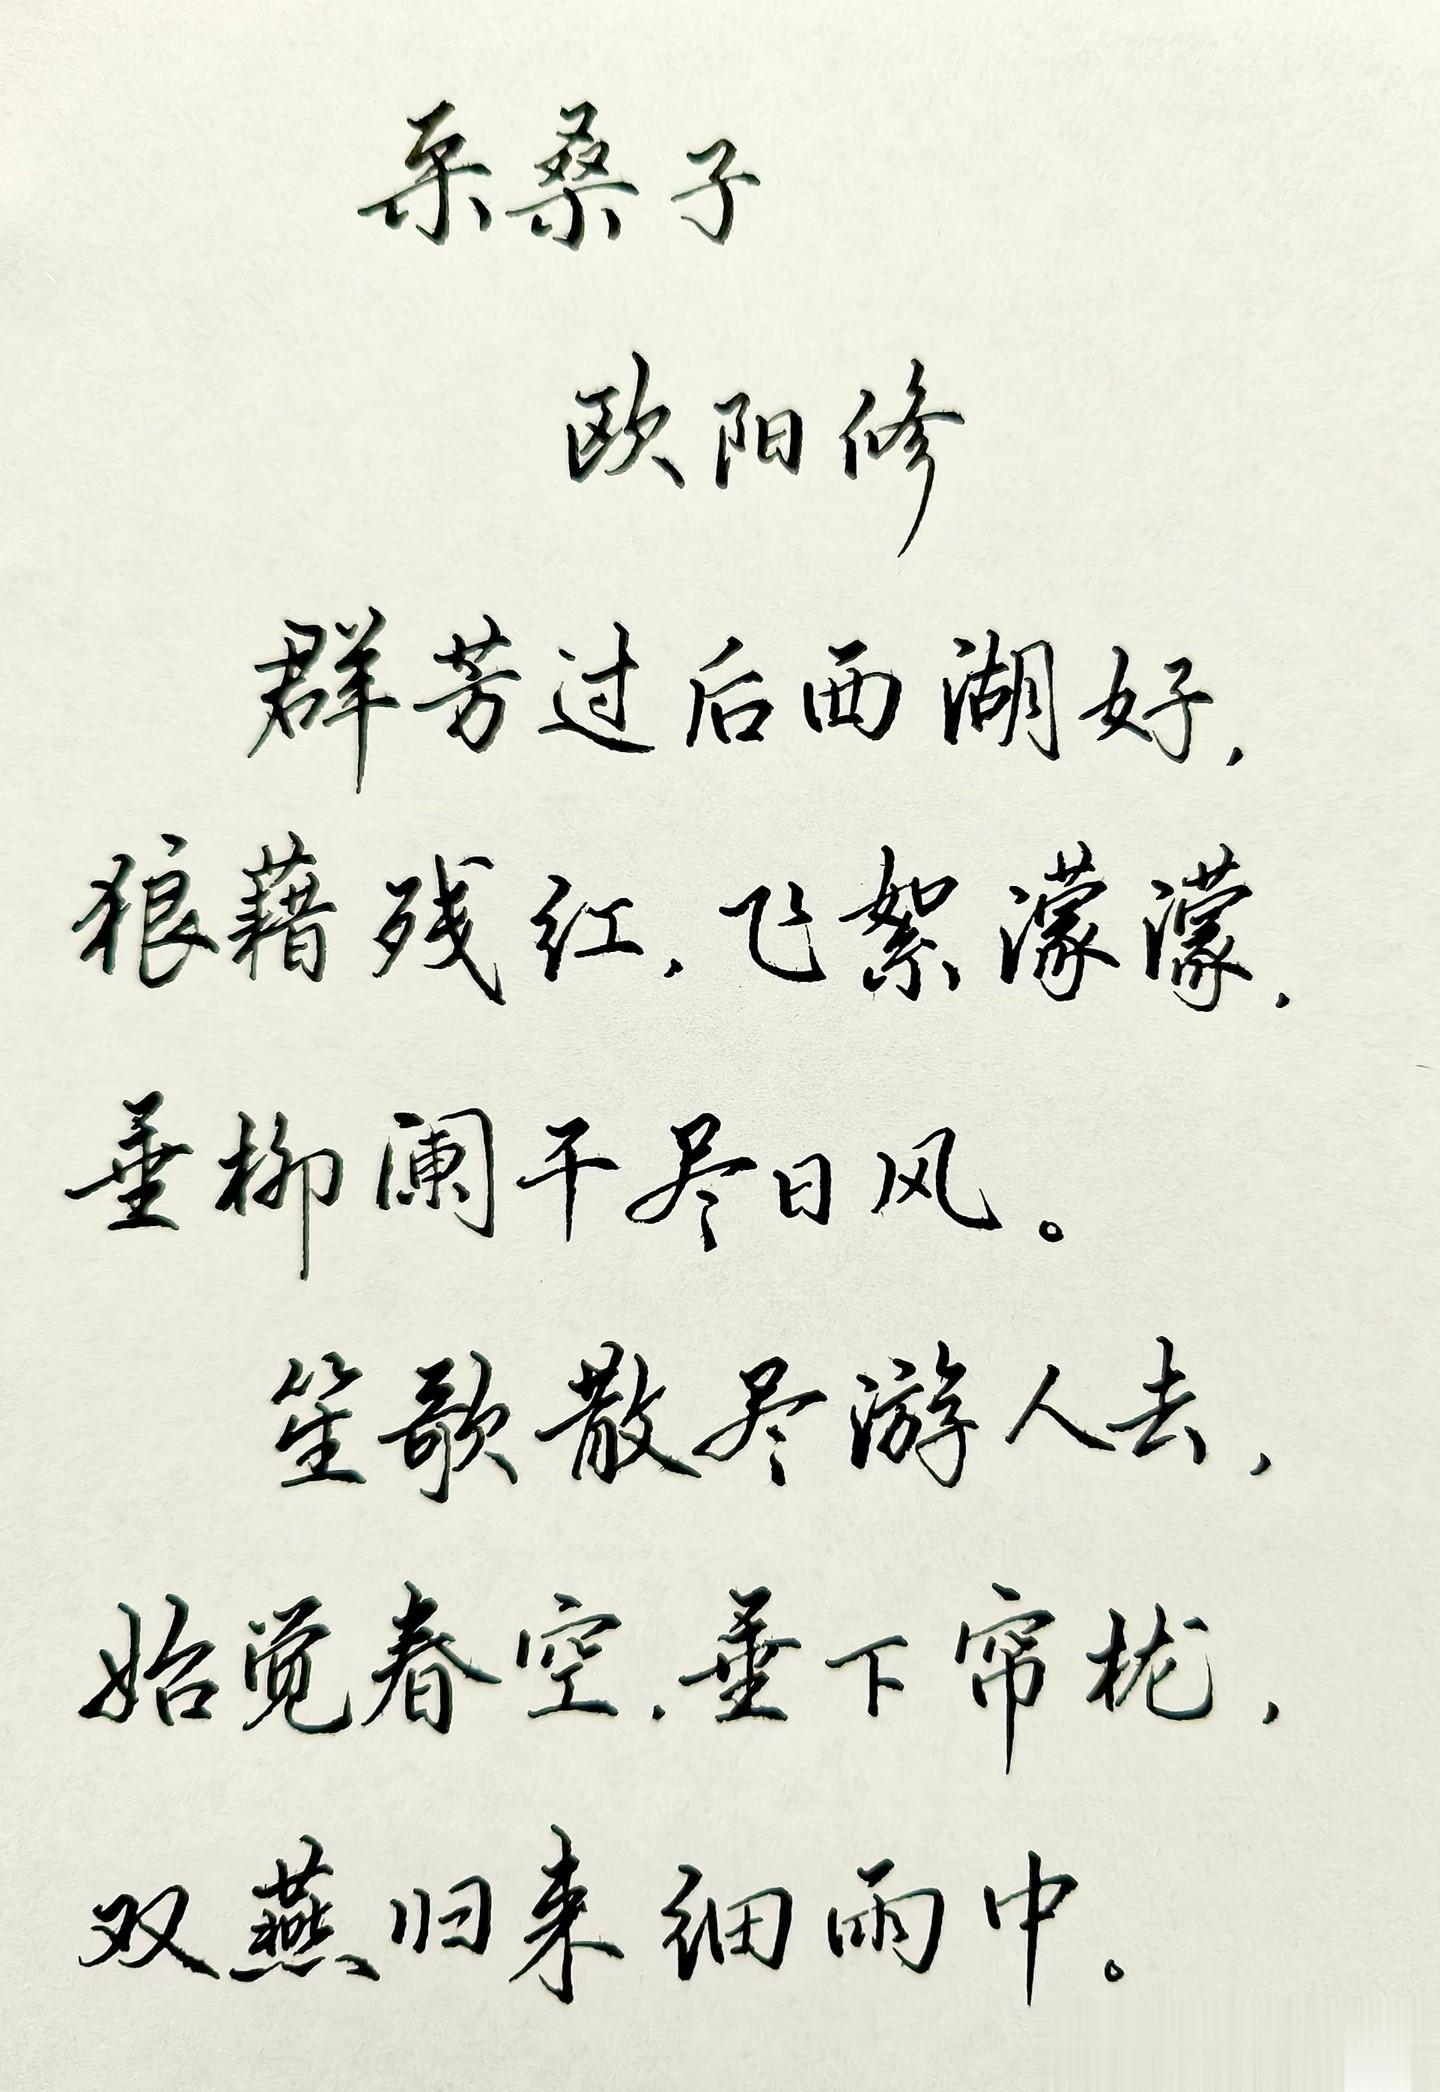 采桑子
欧阳修
群芳过后西湖好，
狼藉残红，飞絮濛濛，
垂柳阑干尽日风。
笙歌散尽游人去，
始觉春空，垂下帘栊，
双燕归来细雨中。